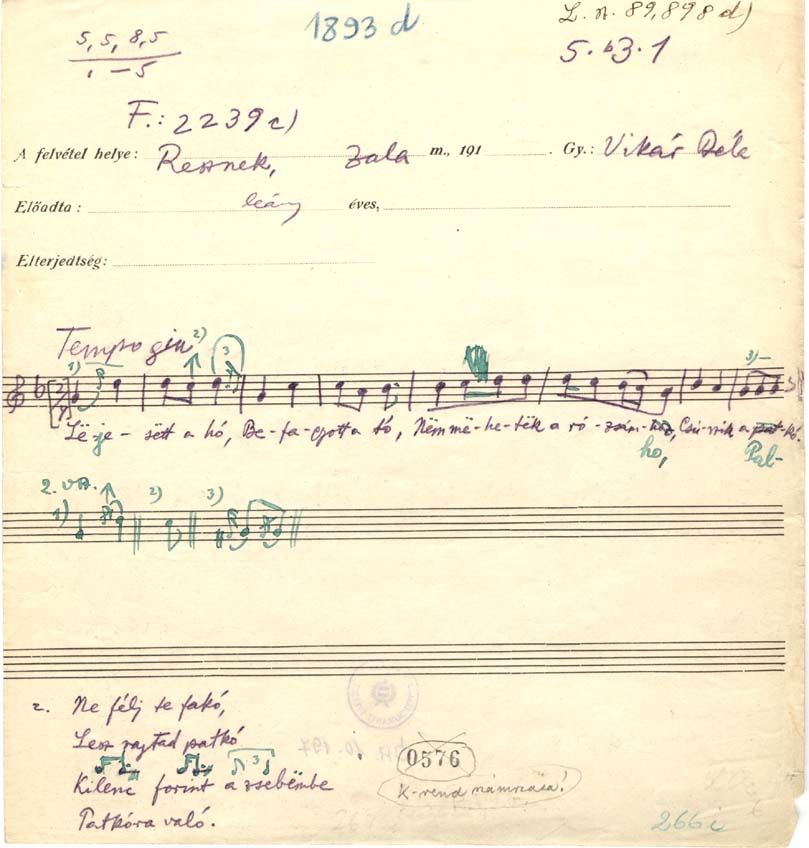 1893 d
L. n. 89,898 d)
5, 5, 8, 5
5. b3. 1
F.: 2239c)
A felvétel helye: Resznek, Zala m., 191 . Gy.: Vikár Béla
Előadta: leány éves,
Elterjedtség:
Tempo giu
1) 2) 3 3)
Lë-je-sëtt a hó, Be-fa-gyott a tó, Nëm më-he-tëk a ró-zsám-hoz, Csú-szik a pat-kó.
ho, Pat-
2. vsz.
1) 2) 3)
2. Ne félj te fakó,
Lesz rajtad patkó
3
Kilenc forint a zsebëmbe
Patkóra való.
0576
K-rend támrása!
266 i